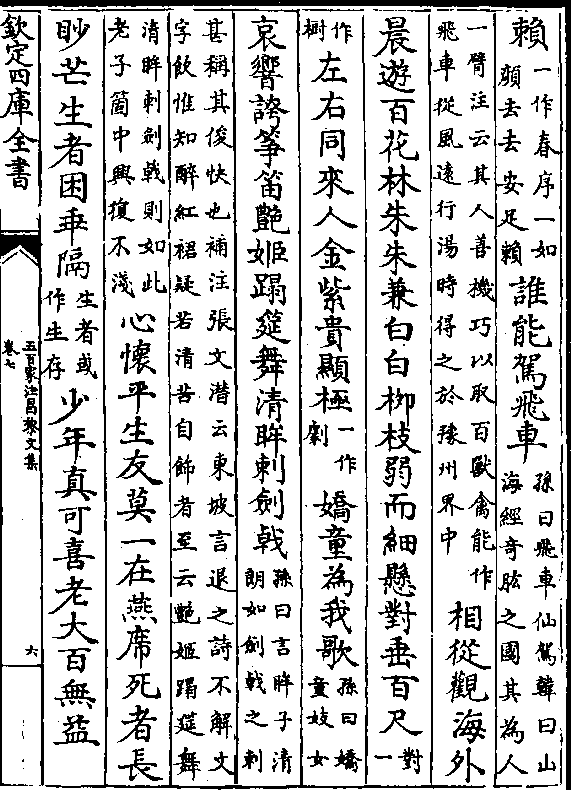 賴一作春序一如頹去去安足賴誰能駕飛車孫曰飛車仙駕韓曰山海經奇肱之國其為人
一臂注云其人善機巧以取百獸禽能作飛車從風遠行湯時得之於豫州界中相從觀海外
晨遊百花林朱朱兼白白栁枝弱而細懸對垂百尺對一
作樹左右同來人金紫貴顯極一作劇嬌童為我歌孫曰嬌童妓女
哀響誇筝笛艶姬蹋筵舞清眸刺劍㦸孫曰言眸子清朗如劍㦸之刺
甚稱其俊快也補注張文潜云東坡言退之詩不解文字飲惟知醉紅裙疑若清苦自飾者至云艶姬蹋筵舞
清眸刺劍㦸則如此老子箇中興復不淺心懷平生友莫一在燕席死者長
眇芒生者困乖隔生者或作生存少年真可喜老大百無益
欽定四庫全書
五百家注昌黎文集
卷七
六